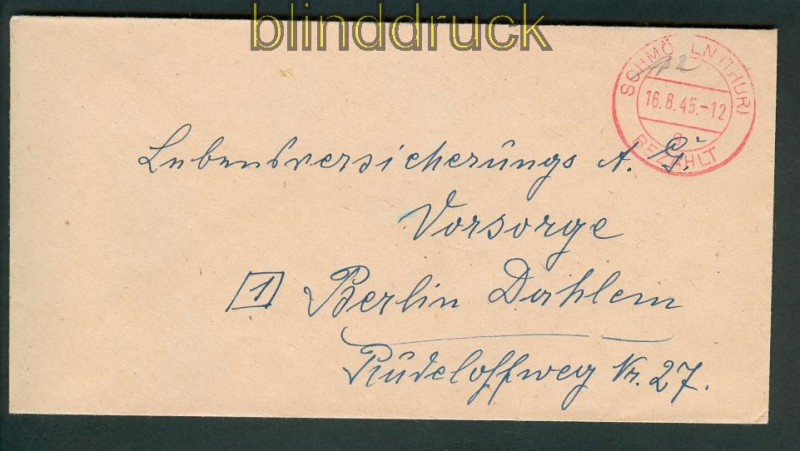 blinddruck
SCHMÖLLN (THÜR)
16.8.45.-12
a
BEZAHLT
12
Lebensversicherungs A. G.
Vorsorge
1 Berlin Dahlem
Rudeloffweg Nr. 27.